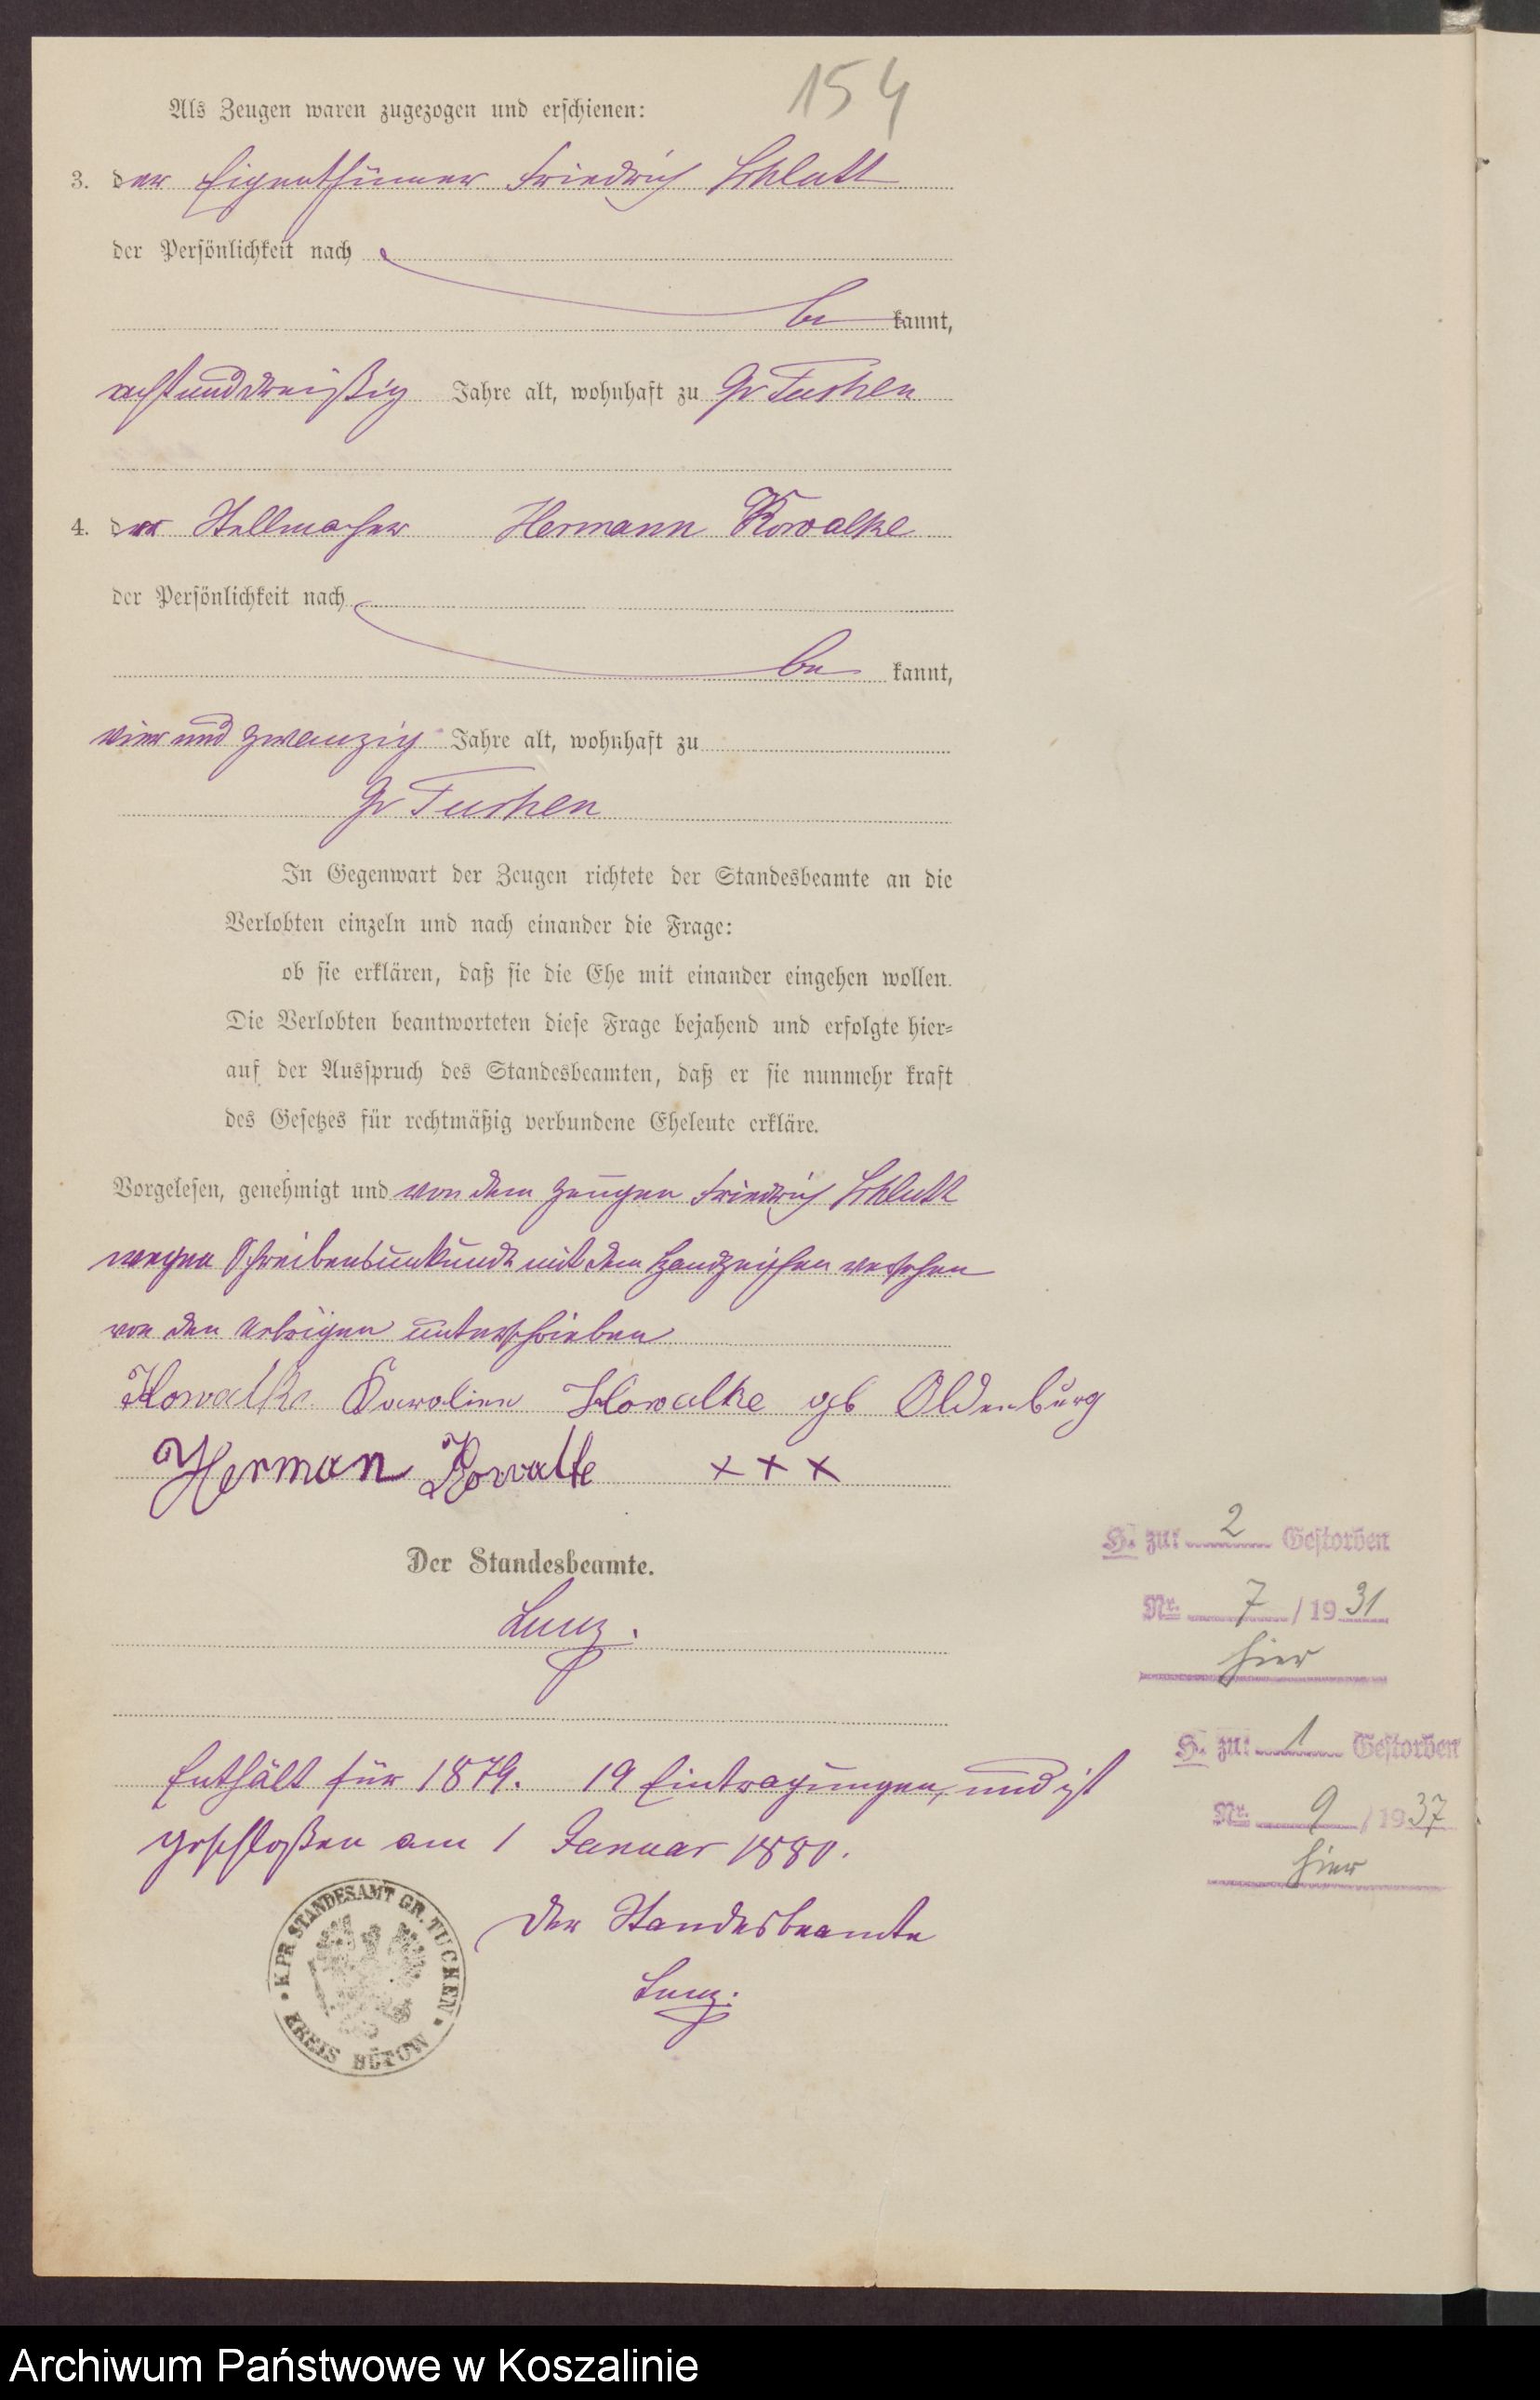 154
Als Zeugen waren zugezogen und erschienen:
3. der Eigenthümer Friedrich Schlutt
der Persönlichkeit nach
be kannt,
achtunddreißig Jahre alt, wohnhaft zu Gr Tuchen
4. der Stellmacher Hermann Kowalke
der Persönlichkeit nach
be kannt,
vier und zwanzig Jahre alt, wohnhaft zu
Gr Tuchen
In Gegenwart der Zeugen richtete der Standesbeamte an die
Verlobten einzeln und nach einander die Frage:
ob sie erklären, daß sie die Ehe mit einander eingehen wollen.
Die Verlobten beantworteten diese Frage bejahend und erfolgte hier-
auf der Ausspruch des Standesbeamten, daß er sie nunmehr kraft
des Gesetzes für rechtmäßig verbundene Eheleute erkläre.
Vorgelesen, genehmigt und von dem Zeugen Friedrich Schlutt
wegen Schreibensunkunde mit dem Handzeichen versehen
von den Uebrigen unterschrieben
Kowalke Karoline Kowalke gb Oldenburg
Herman Kowalke xxx
Der Standesbeamte.
Lunz.
Enthält für 1879. 19 Eintragungen, und ist
geschloßen am 1 Januar 1880.
Der Standesbeamte
Lunz.
KPR STANDESAMT GR. TUCKEN
KREIS BÜTOW
H. zu: 2 Gestorben
Nr. 7 / 1931
hier
H. zu: 1 Gestorben
Nr. 9 / 1937
hier
Archiwum Państwowe w Koszalinie